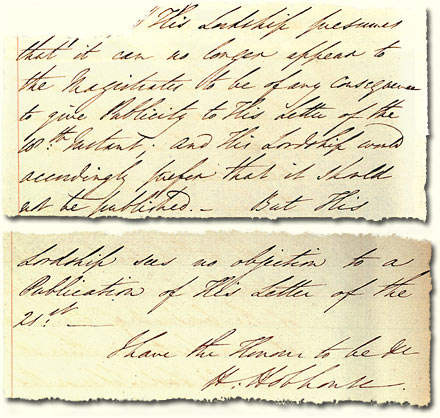 "His Lordship presumes
that it can no longer appear to
the Magistrates to be of any consequence
to give Publicity to His Letter of the
18th Instant; and His Lordship would
accordingly prefer that it should
not be published. — But His
Lordship sees no objection to a
Publication of His Letter of the
21st —
I have the Honour to be &c
H. Hobhouse.